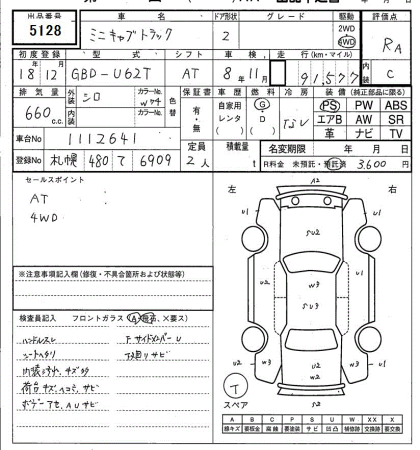 出品番号 車名 ドア形状 グレード 駆動 評価点
5128 ミニキャブトラック 2 2WD 4WD RA
初度登録 型式 シフト 車検 走行(km・マイル) 内装
18 12 GBD-U62T AT 8 11 91577 C
排気量 外装 シロ カラーNo. W 色替 保証書 車歴 燃料 冷房 装備(純正部品に限る)
660 c.c. 内装 カラーNo. 有・無 自家用 レンタ G D PS PW ABS
エアB AW SR
革 ナビ TV
車台No 1112641
定員 積載量 名変期限 年 月 日
登録No 札幌 480 て 6909 2人 t R料金 未預託・預託済 3.600 円
セールスポイント
AT
4WD
左 右
A2
U1 U1
U1 SU2 U1
U2 W3 U2
SU3
W3 W3 W3 W3
U2
W2
S2
※注意事項記入欄(修復・不具合箇所および状態等)
検査員記入 フロントガラス(A 飛石、×要ス)
ハンドルスレ F サイドメンバー U
シートヘタリ 下回リサビ
荷台 キズ、ヘコミ、サビ
ボデーアセ、AUサビ
T
スペア
A B C P S U W X XX
線キズ 要板金 腐 要塗装 サビ 凹凸 補修跡 交換跡 要交換